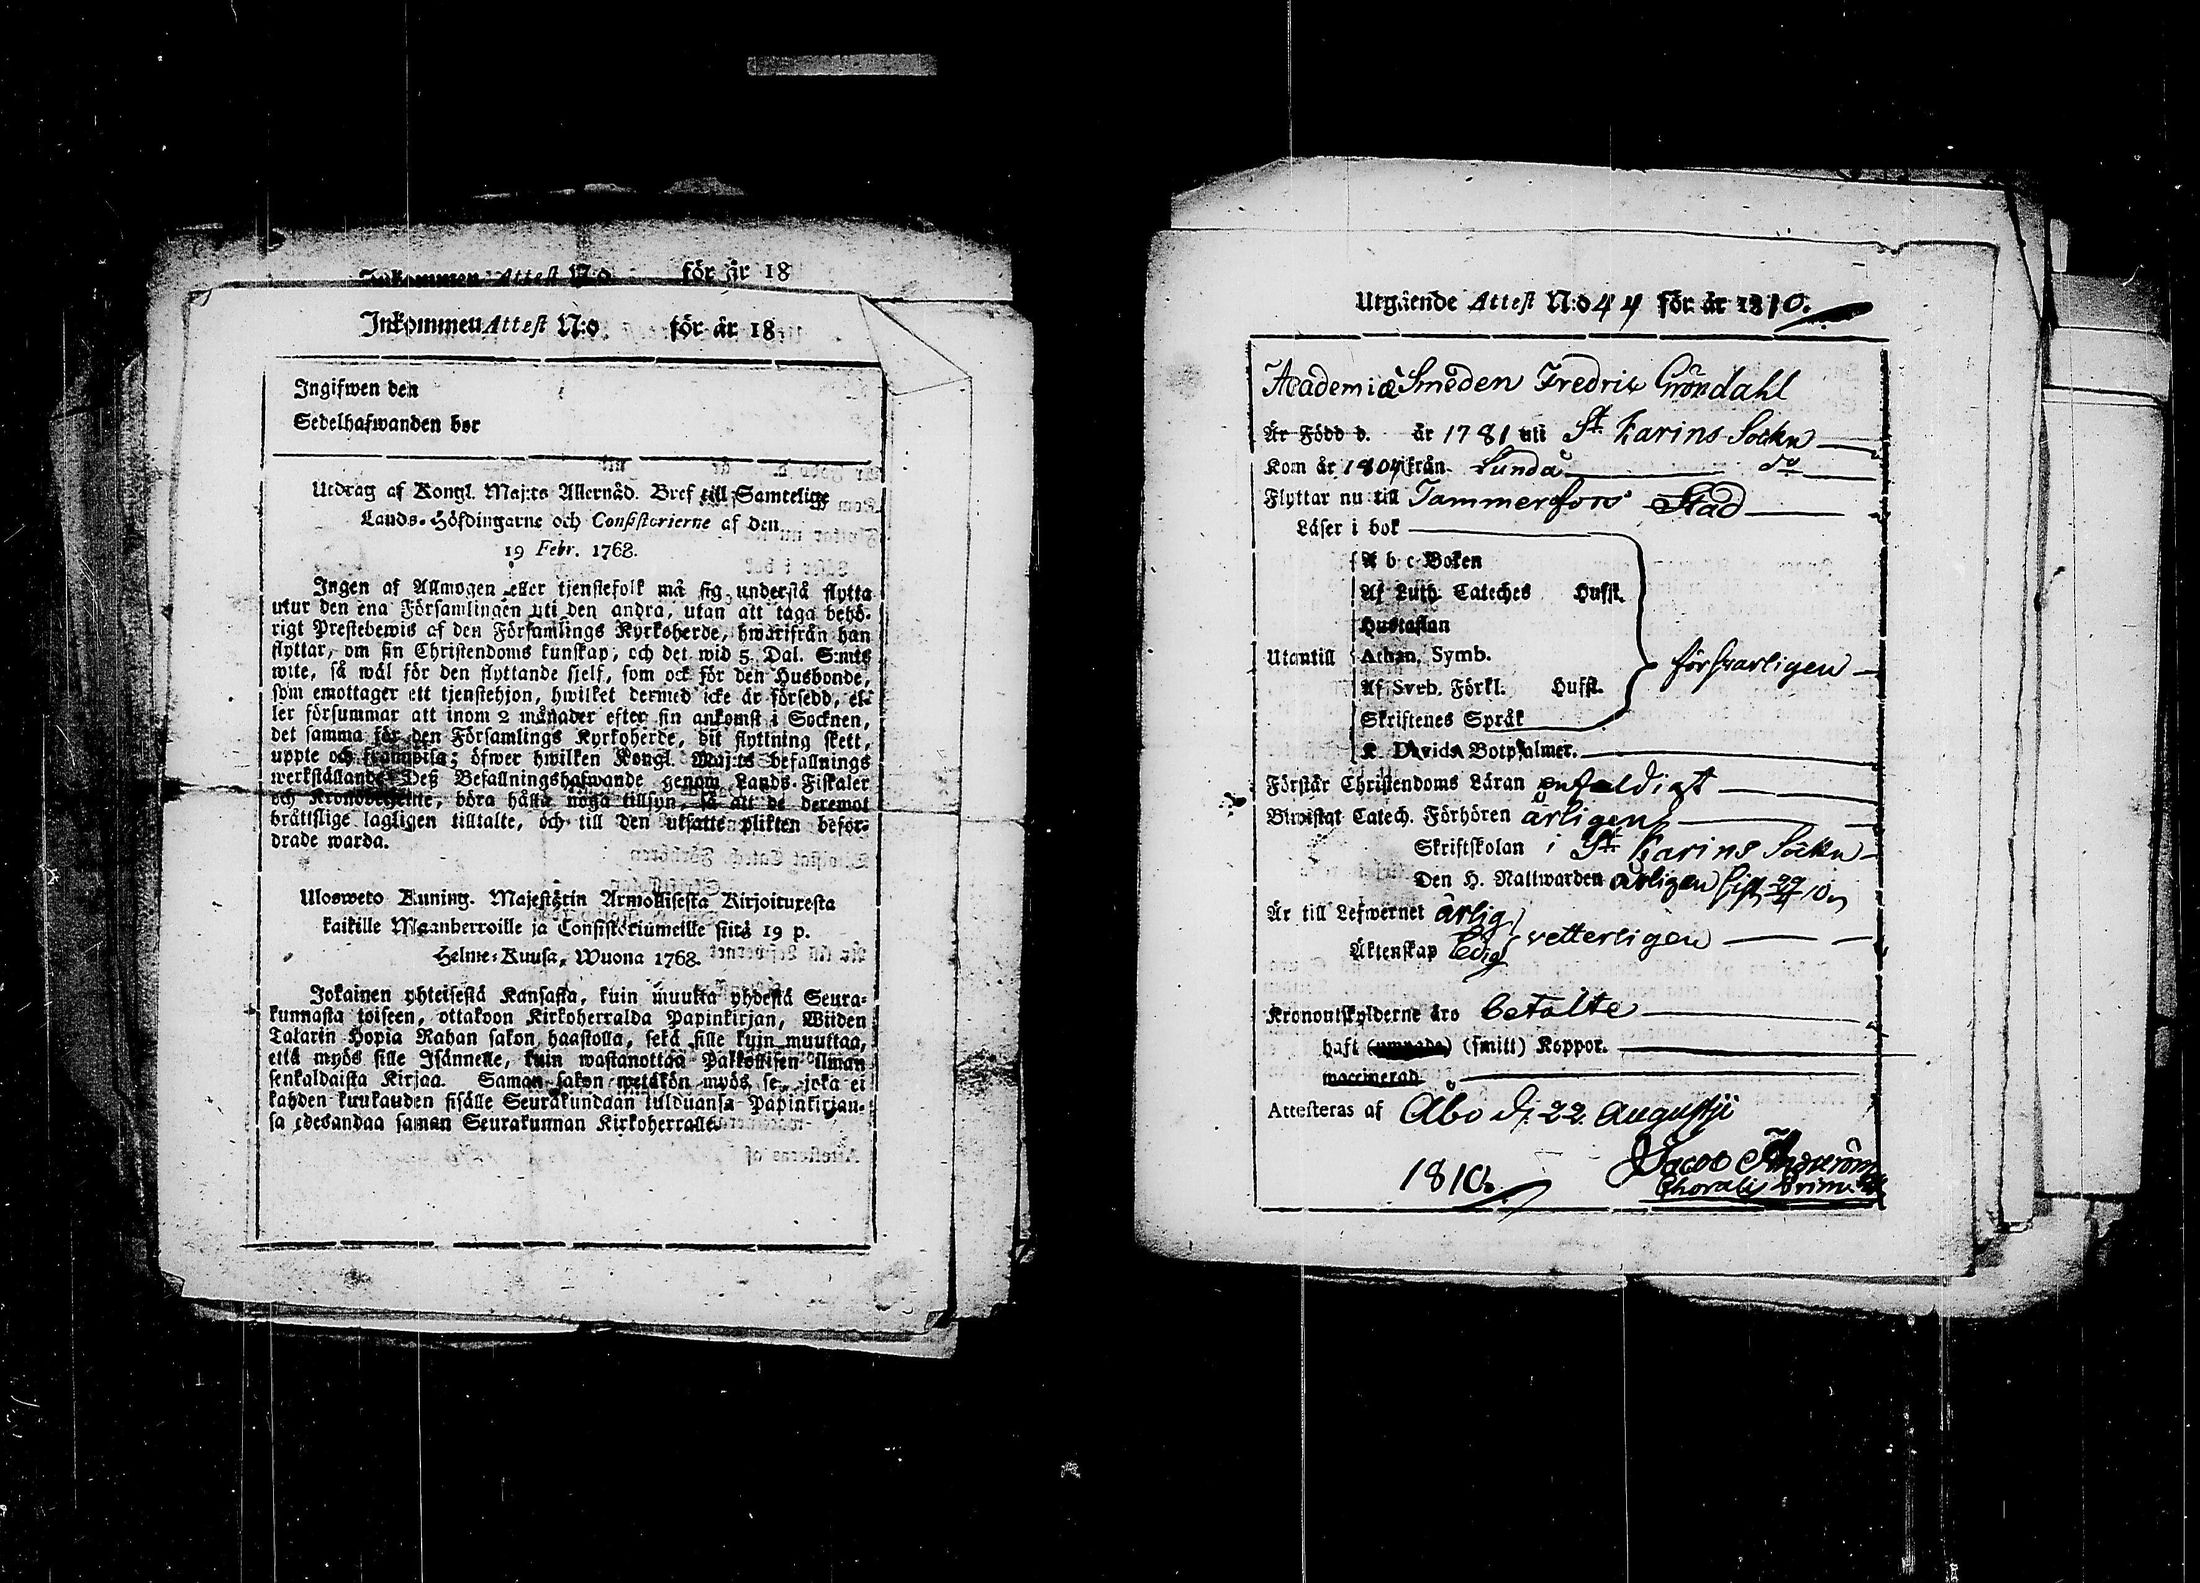 Inkommen Attest N:o för år 18
Inkommen Attest N:o för år 18
Ingifwen den
Sedelhafwanden bor
Utdrag af Kongl. Maj:ts Allernåd. Bref till Samtelige
Lands-Höfdingarne och Consistorierne af den
19 Febr. 1768.
Ingen af Allmogen eller tjenstefolk må sig understå flytta
utur den ena Församlingen uti den andra, utan att taga behö-
rigt Prestebewis af den Församlings Kyrkoherde, hwarifrån han
flyttar, om sin Christendoms kunskap, och det wid 5 Dal. S:mts
wite, så wäl för den flyttande sjelf, som ock för den Husbonde,
som emottager ett tjenstehjon, hwilket dermed icke är försedd, el-
ler försummar att inom 2 månader efter sin ankomst i Socknen,
det samma för den Församlings Kyrkoherde, dit flyttning skett,
uppte och framwisa; öfwer hwilken Kongl. Maj:ts befallnings
werkställande Deß Befallningshafwande genom Lands-Fiskaler
och Kronobetjente, böra hålla noga tillsyn, så att de deremot
brättslige lagligen tilltalte, och till den utsatte plikten befor-
drade warda.
Ulosweto Kuning. Majestätin Armollisesta Kirjoituxesta
kaikille Maanherroille ja Consistoriumeille siitä 19 p.
Helme-Kuusa, Wuona 1768.
Jokainen yhteisestä Kansasta, kuin muutta yhdestä Seura-
kunnasta toiseen, ottakoon Kirkoherralda Papinkirjan, Wiiden
Talarin Hopia Rahan sakon haastolla, sekä sille kuin muuttaa,
että myös sille Isännelle, kuin wastanottaa Palkollisen ilman
senkaldaista Kirjaa. Saman sakon wetäkön myös se, joka ei
kahden kuukauden sisälle Seurakundaan tulduansa Papinkirjan-
sa edesandaa saman Seurakunnan Kirkoherralle.
Utgående Attest N:o 44 för år 1810.
Academiæ Smeden Fredric Gröndahl
Är Född d. år 1781 uti St. Karins Sockn
Kom år 1807 ifrån Lundo do
Flyttar nu till Tammerfors Stad
Läser i bok
A b c Boken
Af Luth. Cateches Hufst.
Hustaflan
Utantill Athan. Symb. försvarligen
Af Sveb. Förkl. Hufst.
Skriftenes Språk
K. Davids Botpsalmer.
Förstår Christendoms Läran enfaldigt
Biwistat Catech. Förhören årligen
Skriftskolan i St. Karins Sockn
Den H. Nattwarden årligen sist
Är till Lefwernet ärlig
Äktenskap ledig vetterligen
Kronoutskylderne äro betalte
haft (smitt) Koppor.
waccinerad
Attesteras af Åbo d. 22 Augusti
1810.
Jacob